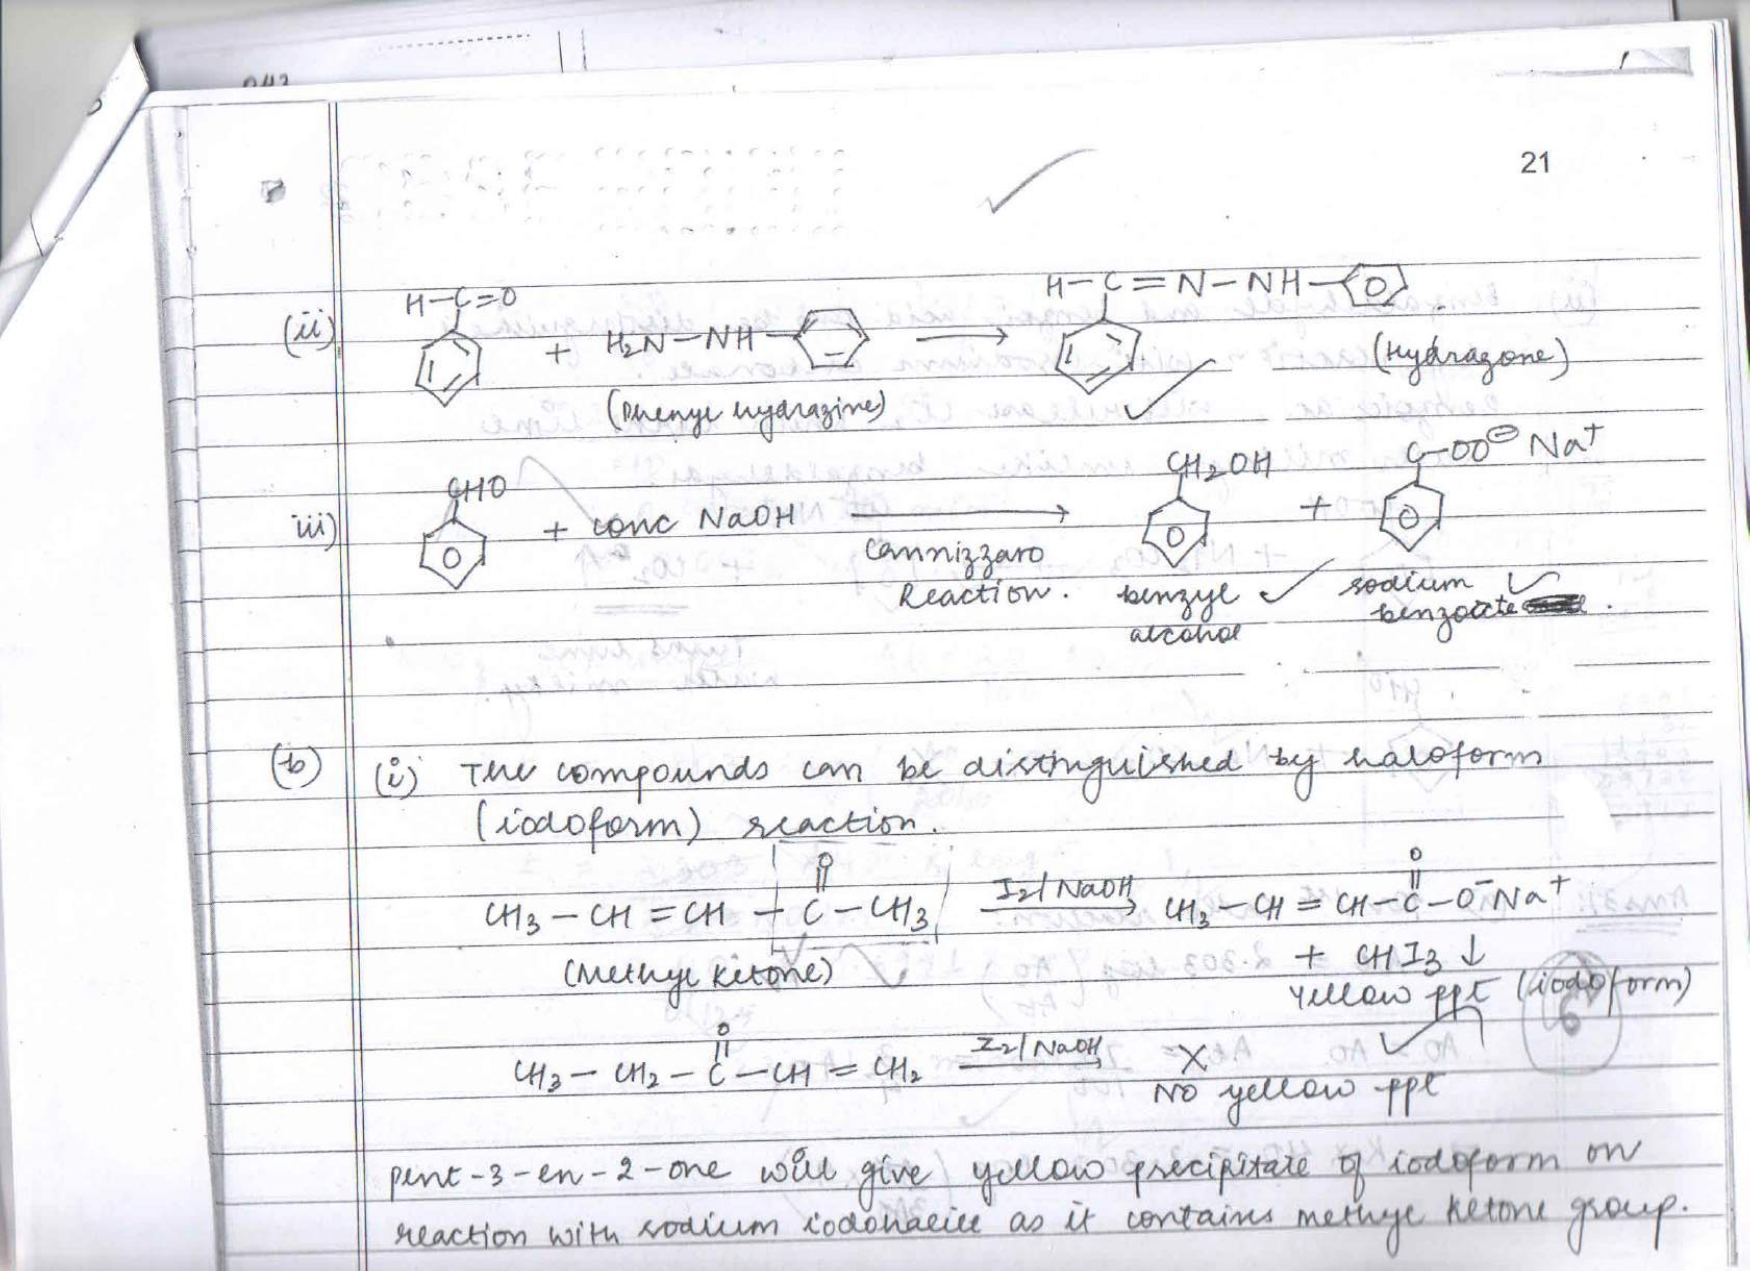 21
(ii) H-C=O + H2N-NH- → H-C=N-NH-
(Phenyl hydrazine) (Hydrazone)
iii) CHO + conc NaOH → CH2OH + C-OO⊖ Na+
Cannizzaro Reaction.
benzyl alcohol
sodium benzoate.
(b) (i) The compounds can be distinguished by haloform
(iodoform) reaction.
CH3-CH=CH-C(=O)-CH3 I2/NaOH → CH3-CH=CH-C(=O)-O⁻Na⁺
(Methyl Ketone) + CHI3↓
Yellow ppt (iodoform)
CH3-CH2-C(=O)-CH=CH2 I2/NaOH → X
No yellow ppt
pent-3-en-2-one will give yellow precipitate of iodoform on
reaction with sodium iodohalite as it contains methyl ketone group.